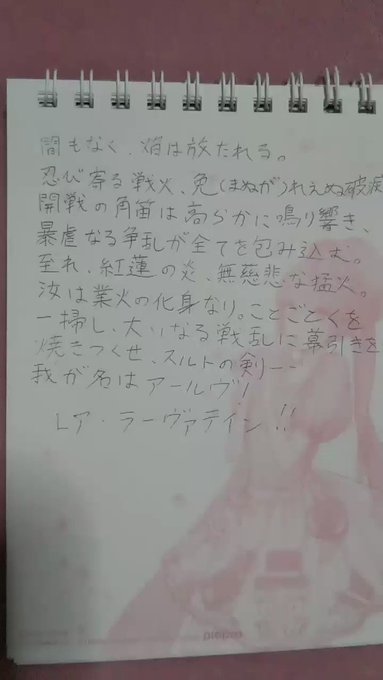 間もなく、焔は放たれる。
忍び寄る戦火、免(まぬが)れえぬ破滅
開戦の角笛は高らかに鳴り響き、
暴虐なる争乱が全てを包み込む。
至れ、紅蓮の炎、無慈悲な猛火。
汝は業火の化身なり。ことごとくを
一掃し、大いなる戦乱に幕引きを
焼きつくせ、スルトの剣――
我が名はアールヴ!
レア・ラーヴァテイン!!